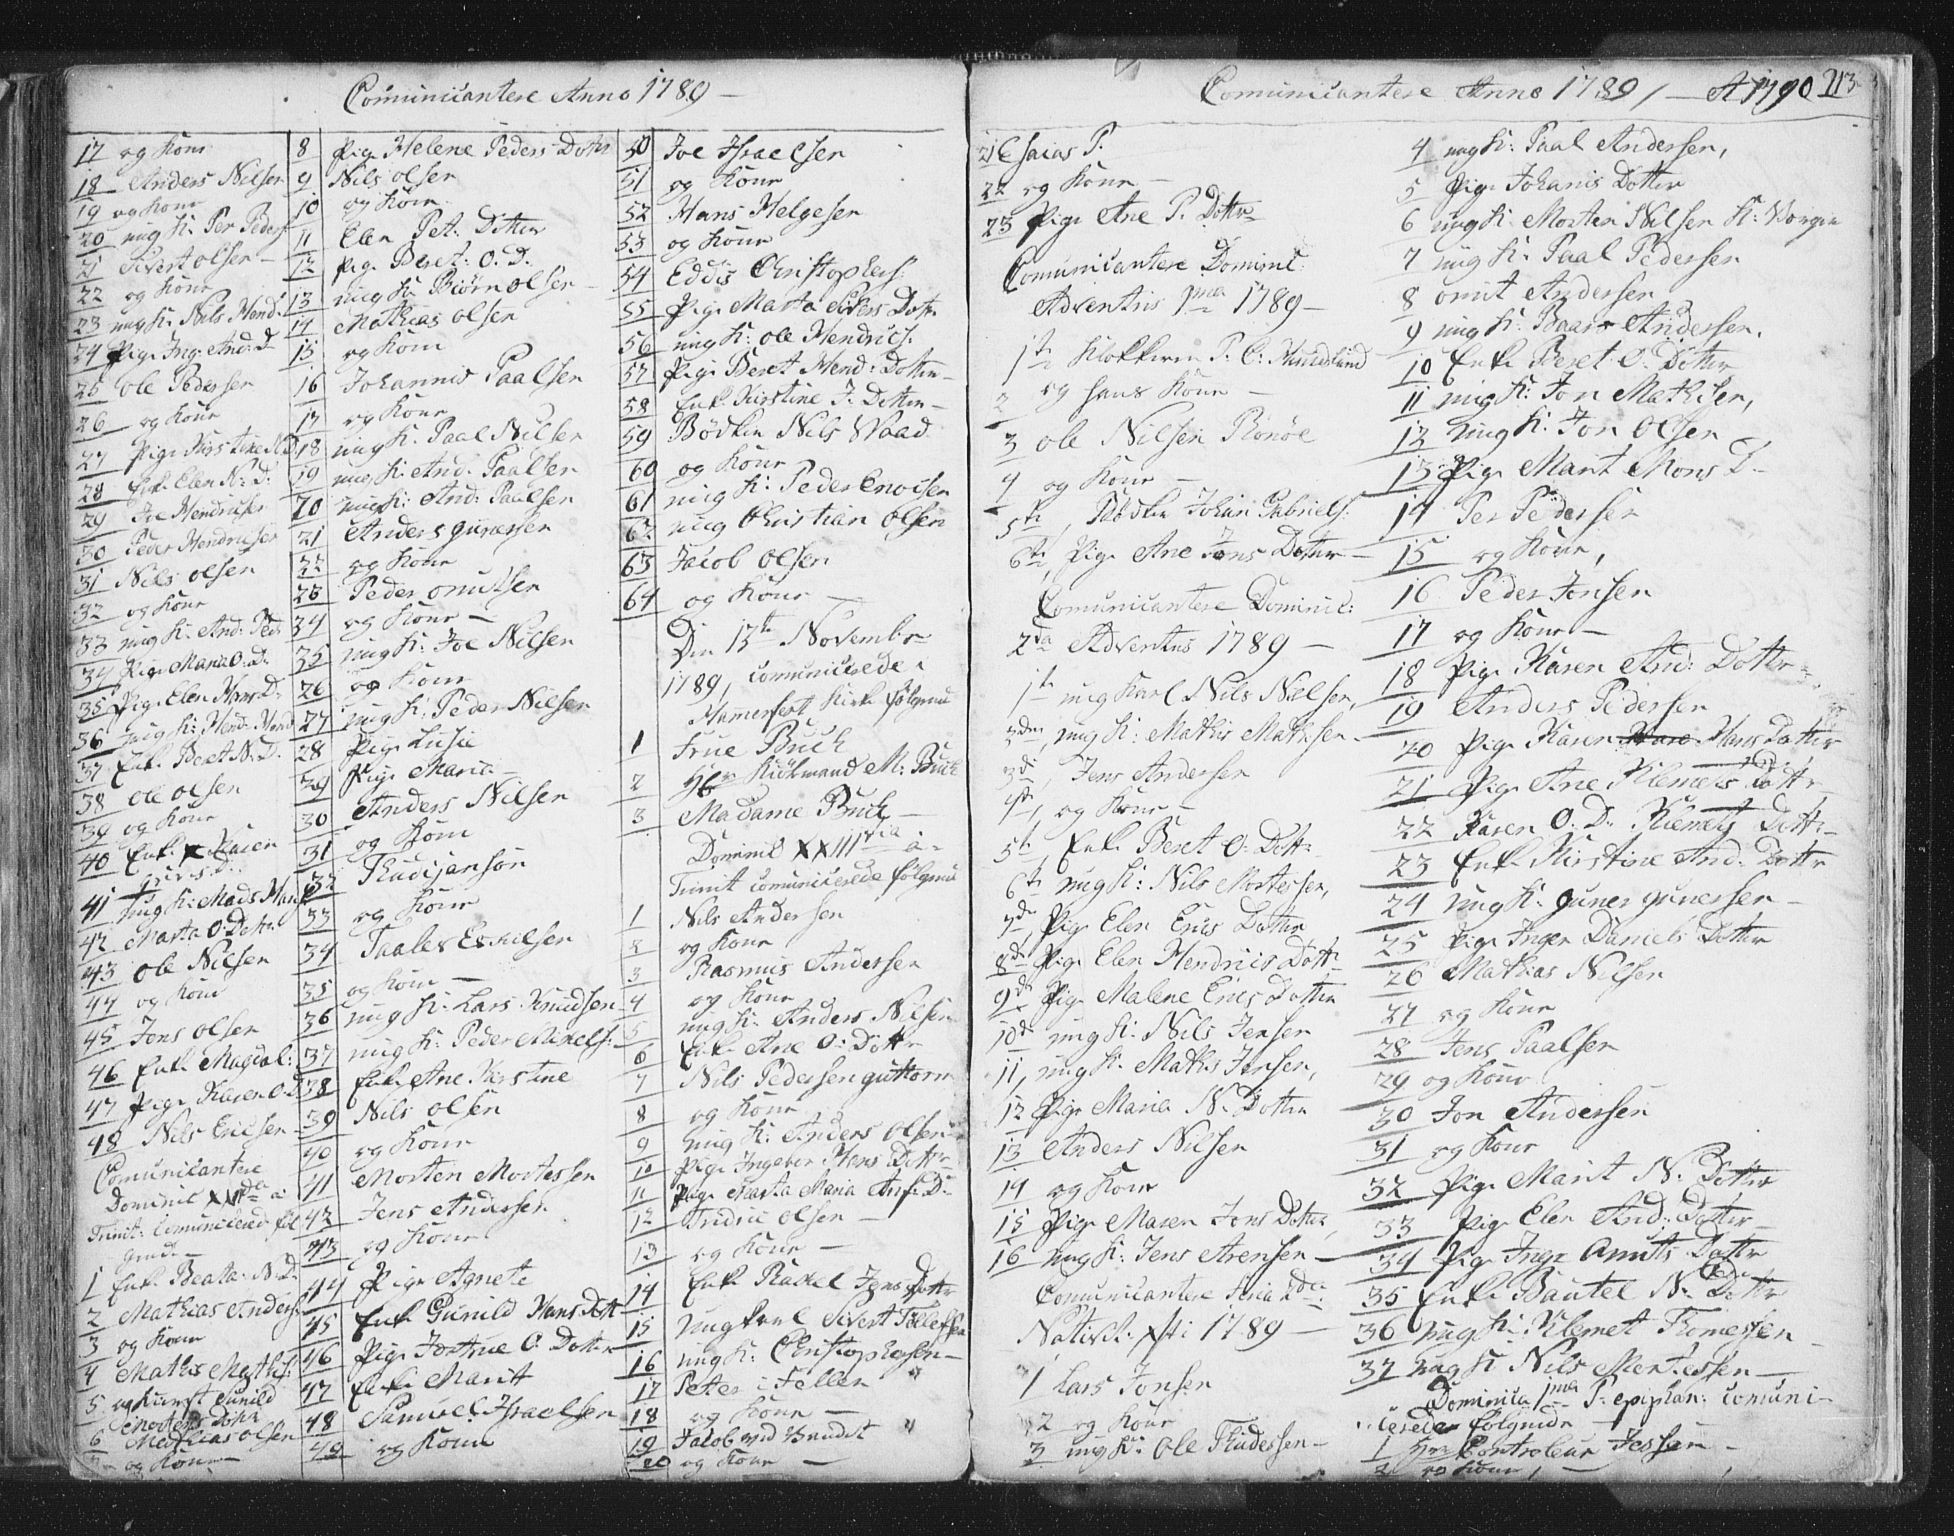 Comunicantere Anno 1789 —
17 og Kone
18 Anders Nilsen
19 og Kone
20 ung K: Per Peders
21 Sivert olsen —
22 og Kone
23 ung K: Nils Hend:
24 Pige Ing: And: D.
25 ole Pedersen
26 og Kone
27 Pige Kirstine N D
28 Enk. Elen N: D:
29 Joe Hendricsen
30 Peder Hendricsen
31 Nils olsen
32 og Kone
33 ung K: And: Ped:
34 Pige Maria O: D.
35 Pige Elen Hans D:
36 ung K: Hend: Hend
37 Enk. Beret N: D.
38 ole olsen
39 og Kone
40 Enk. Karen
41 ung K: Mads Hans
42 Marta O: Dotter
43 ole Nilsen
44 og Kone
45 Jens olsen
46 Enk. Magdal:
47 Pige Karen O: D
48 Nils Ericsen —
Comunicantere
Dominic XXIIda a:
Trinit: comunicered føl
gende —
1 Enk. Beata N: D.
2 Mathias Anders:
3 og Kone
4 Mathis Mathis:
5 og Gunild
Mortens Dotter
6 Mathias olsen
7 og Kone —
8 Pige Helene Peders Dotter
9 Nils olsen
10 og Kone
11 Elen Pet: Dotter
12 Pige Beret: O. D.
13 ung K. Biørn olsen —
14 Mathias olsen
15 og Kone
16 Johannis Paalsen
17 og Kone
18 ung K. Paal Nilsen
19 ung K: And: Paalsen
20 ung K: And: Paalsen
21 Anders gunersen
22 og Kone
23 Peder omutsen
24 og Kone —
25 ung K: Joe Nilsen
26 og Kone
27 ung K: Peder Nilsen
28 Pige Lusie
29 Pige Maria
30 Anders Nilsen
31 og Kone
32
33 og Kone
34 Taales Eskilsen
35 og Kone —
36 ung K: Lars Knudsen
37 ung K: Peder Mikels:
38 Enk. Ane Kirstine
39 Nils olsen
40 og Kone
41 Morten Mortessen
42 Jens Andersen
43 og Kone
44 Pige Agnete
45 Enk. Gunild Hans Dott
46 Pige O: Dotter
47 Enke Marit
48 Samuel Israelsen
49 og Kone
50 Joe Israelsen
51 og Kone
52 Hans Helgesen
53 og Kone
54 Eddis Christophers:
55 Pige Marta Sivers Dott:
56 ung K: ole Hendrics:
57 Pige Beret Hend: Dotter —
58 Enk. Kirstine J. Dotter —
59 Bødker Nils Waad
60 og Kone
61 ung K: Peder Enocsen
62 ung Christian olsen
63 Jacob olsen
64 og Kone —
Den 15te November
1789, comunicerede i
Hamerfest Kirke følgende
1 Frue Buch
2 Hr Kiöbmand M: Buch
3 Madame Buch —
Dominic XXIIItia a:
Trinit comunicerede følgende
1 Nils Andersen
2 og Kone
3 Rasmus Andersen
4 og Kone
5 ung K: Anders Nilsen
6 Enk. Ane O: Dotter
7 Nils Pedersen guttorm
8 og Kone
9 ung K: Anders olsen
10 Pige Ingebor Hans Dotter
11 Pige Marta Maria D:
12 Fridric olsen —
13 og Kone —
14 Enk. Rakel Jens Dotter
15 ung karl Sivert Tollefsen
16 ung K: Christophersen —
17 Peter i Fellen "
18 og Kone —
19 Jacob ved Bruddet "
20 og Kone —
Comunicantere Anno 1789 / — A 1790 213
21 Esaias P.
22 og Kone —
23 Pige Ane P. Dotter
Comunicantere Dominic:
Adventus 1ma 1789 —
1te Klokkeren P. C:
2 og hans Kone —
3 ole Nilsen Rönöe
4 og Kone —
5te, Bödker Johan Gabriels:
6te, Pige Ane Jens Dotter —
Comunicantere Dominic:
2da Adventus 1789 —
1te ung Karl Nils Nielsen,
2den, ung K: Mathis Mathisen —
3di, Jens Andersen
4de, og Kone —
5te Enk. Beret O: Dotter
6te ung K: Nils Mortessen,
7de, Pige Elen Erics Dotter
8de Pige Elen Hendrics Dotter
9de Pige Malene Erics Dotter
10de ung K: Nils Jensen
11, ung K. Mathis Jensen,
12 Pige Maria N. Dotter
13 Anders Nilsen
14 og Kone
15 Pige Maren Jons Dotter,
16 ung K: Jens Arensen —
Comunicantere Feria 2da:
Nativit: Xsti 1789 —
1 Lars Jonsen
2 og Kone
3 ung K: Ole Tudessen —
4 ung K: Paal Andersen,
5 Pige Johanis Dotter
6 ung K: Morten Nilsen K: Worgen
7 ung K: Paal Pedersen
8 omut Andersen
9 ung K: Baar Andersen.
10 Enke Beret O: Dotter
11 ung K: Jon Mathisen,
12 ung K: Jon olsen
13 Pige Marit Mons D —
14 Per Pedersen
15 og Kone,
16 Peder Jonsen
17 og Kone —
18 Pige Karen And: Dotter
19 Anders Pedersen
20 Pige Karen Hans Dotter
21 Pige Ane Klemets Dotter
22 Karen O. D. Klemets Dotter
23 Enke Kirstine And: Dotter
24 ung K: guner gunersen —
25 Pige Inger Daniels Dotter
26 Mathias Nilsen
27 og Kone
28 Jens Paalsen
29 og Kone
30 Jon Andersen
31 og Kone
32 Pige Marit N. Dotter
33 Pige Elen And: Dotter —
34 Pige Inger Omuts Dotter
35 Enke Bautel N: Dotter
36 ung K: Klemet Tomessen —
37 ung K Nils Mortessen —
Dominica 1ma P: epiphan: comuni-
cerede følgende —
1 Hr Controleur Jessen —
2 og Kone, —